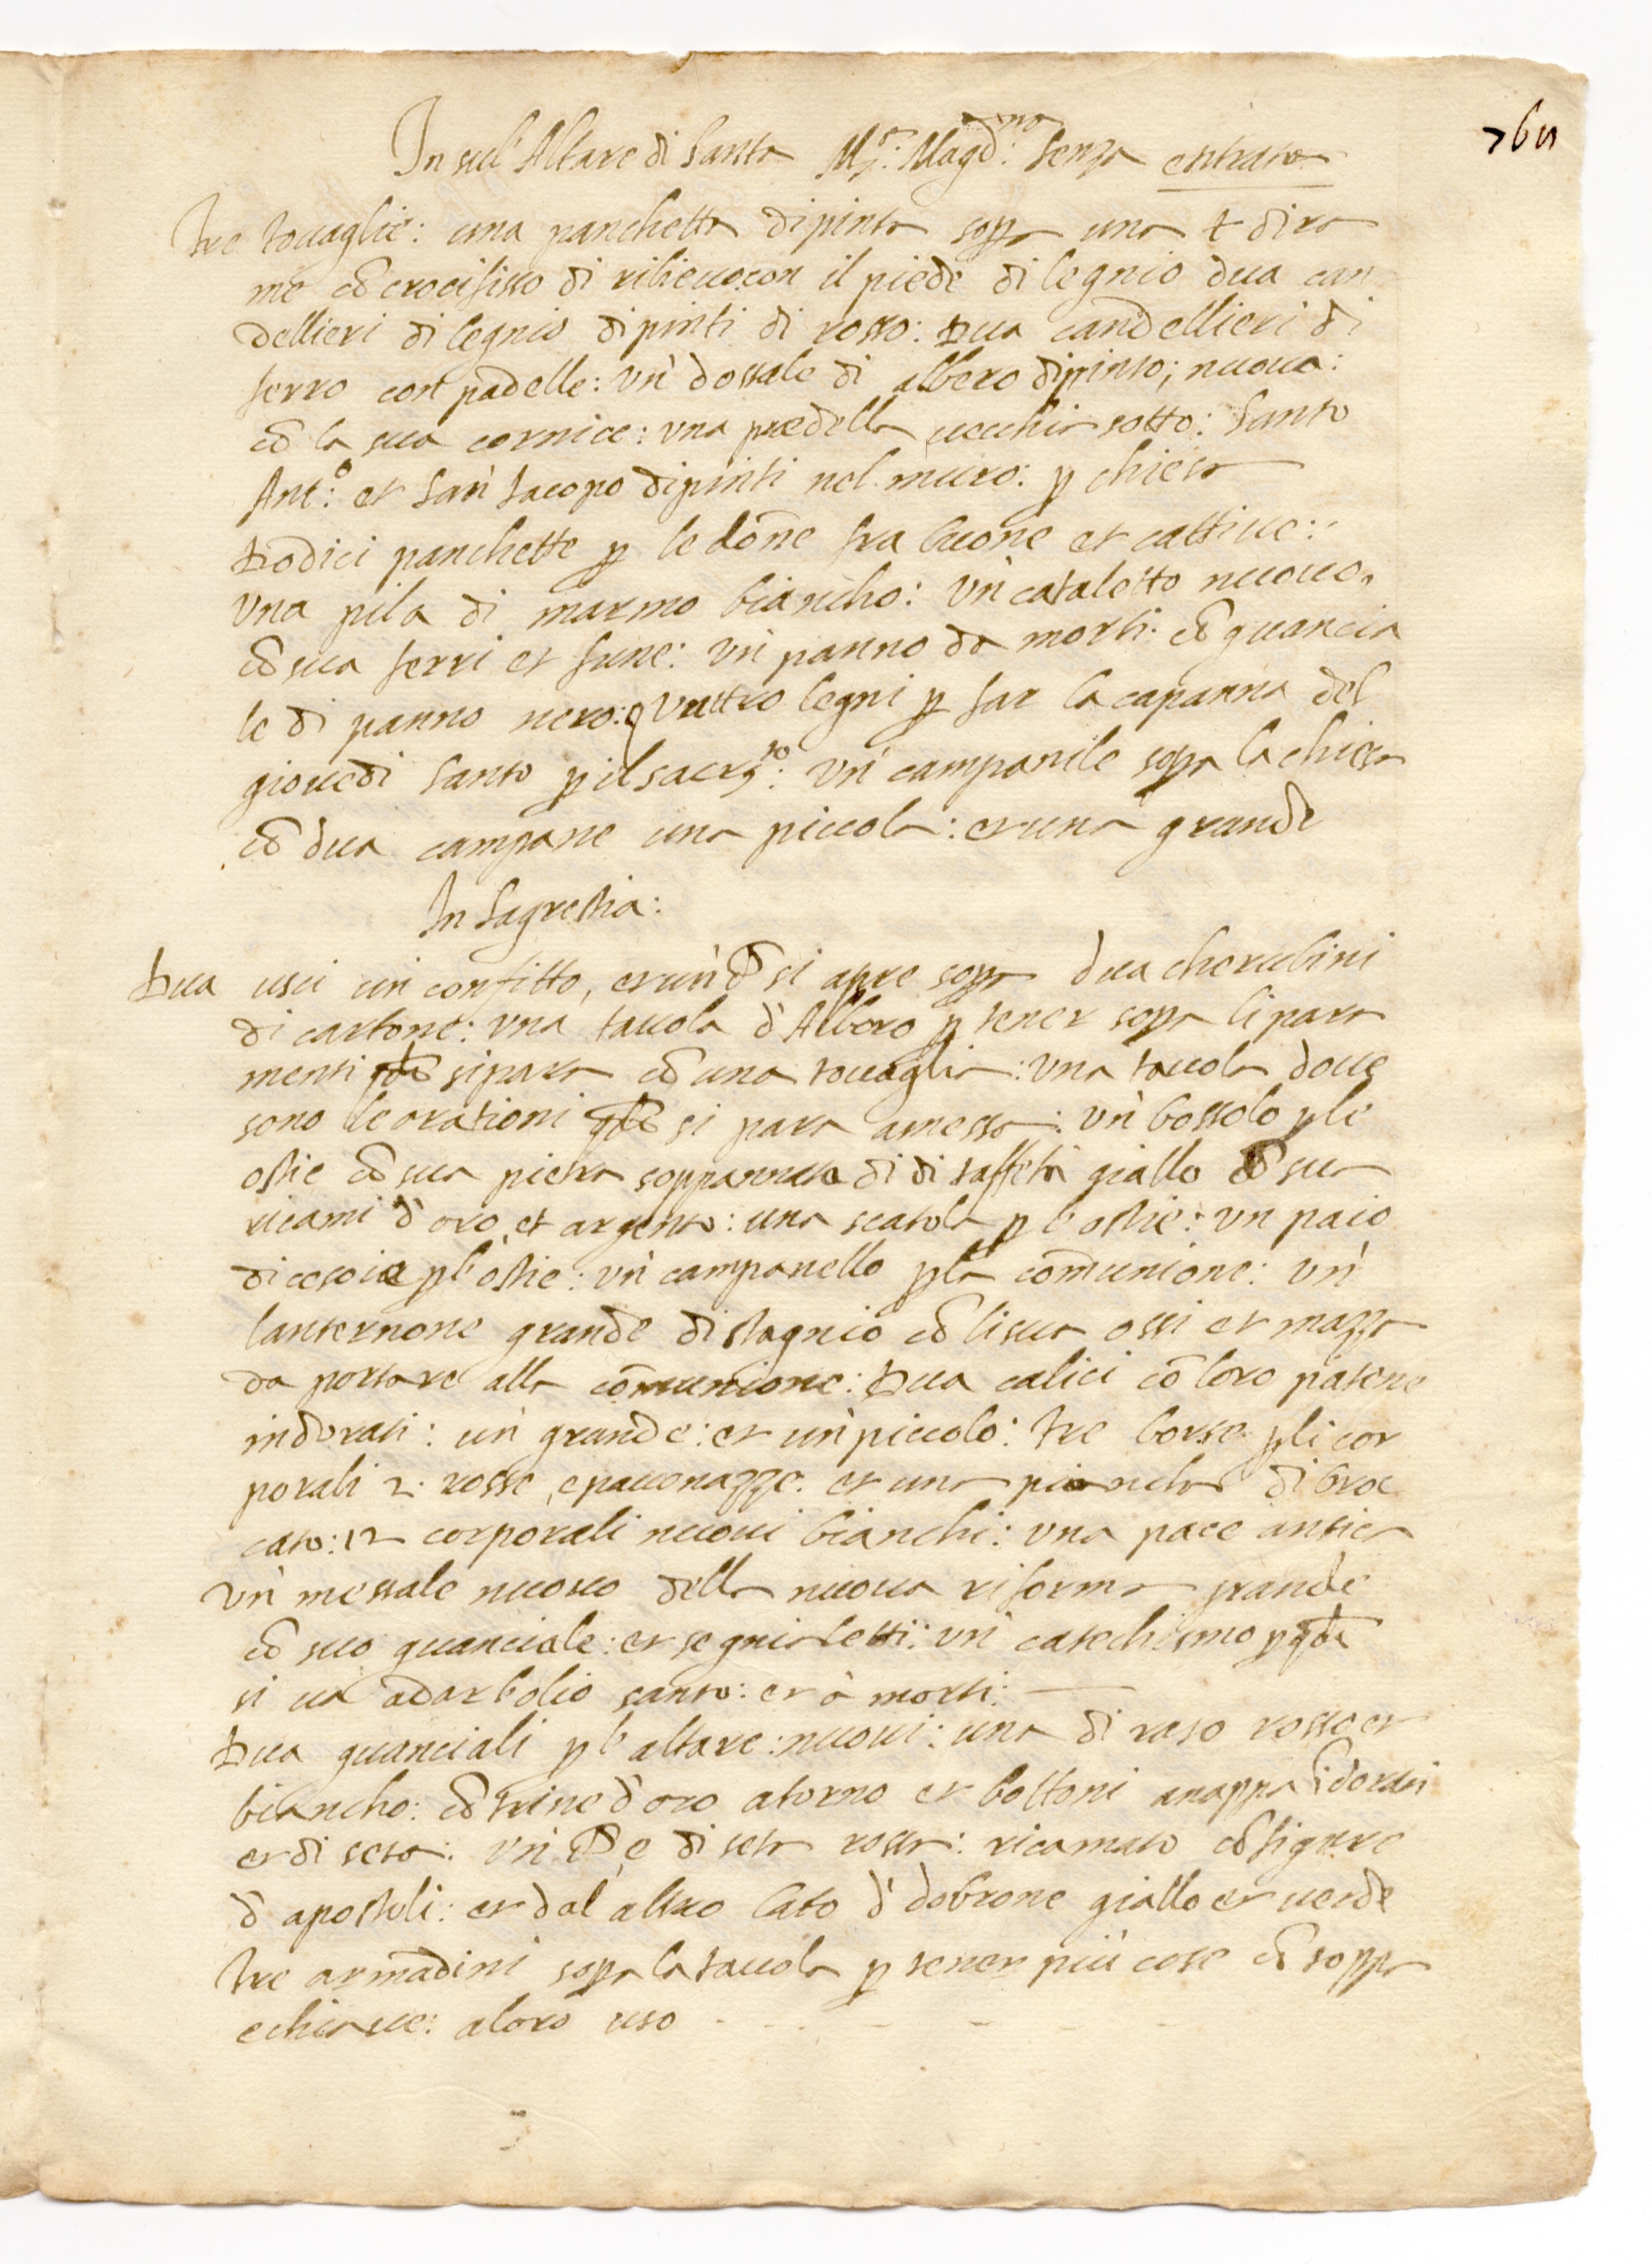 In sul' Altare di Santa M.ª: Magd.ⁿᵃ: Senza entrata
Tre touaglie: una panchetta dipinta sopra una + di ra
me cō crocifisso di rilieuo con il piede di legnio dua can
dellieri di legnio dipinti di rosso: Dua candellieri di
ferro con padelle: Vn' dossale di albero dipinto; nuoua:
cō la sua cornice: vna predella uecchia sotto: Santo
Ant.º: et San' Iacopo dipinti nel muro: p chiesa
Dodici panchette p le dōne fra buone et cattiue:
Vna pila di marmo biancho: Vn' cataletto nuouo,
cō sua ferri et fune: Vn' panno da morti: cō guancia
le di panno nero: quattro legni p far la capanna del
giouedi Santo p il sacr.ᵗᵒ: Vn' campanile sopra la chiesa
cō dua campane una piccola: et una grande
In Sagrestia:
Dua usci un' confitto, et un' si apre sopra dua cherubini
di cartone: vna tauola d'Albero p tener sopra li para
menti si para cō una touaglia: vna tauola doue
sono le orationi si para a messa: Vn' bossolo p le
ostie cō sua pietra soppannata di di taffeta giallo cō sua
ricami d'oro, et argento: una scatola p l'ostie: vn paio
di cesoie p l'ostie: vn' campanello p la comunione: vn'
lanternone grande di stagnio cō li sua ossi et mazza
da portare alla comunione: Dua calici cō loro patene
indorati: un' grande: et un' piccolo: tre borse p li cor
porali 2. rosse, e pauonazze. et una di broc
cato: 12 corporali nuoui bianchi: vna pace antica
Vn' messale nuouo della nuoua riforma grande
cō suo guanciale: et segnioletti: vn' catechismo p
si ua a dar l'olio santo: et à morti:
Dua guanciali p l'altare: nuoui: una di raso rosso et
biancho: cō trine d'oro atorno et bottoni a nappa dorati
et di seta: Vn' di seta rossa: ricamato cō figure
d'apostoli: et dal altro lato d' dobrone giallo et uerde
Tre armadini sopra la tauola p tener più cose cō toppa
e chiaue: a loro uso